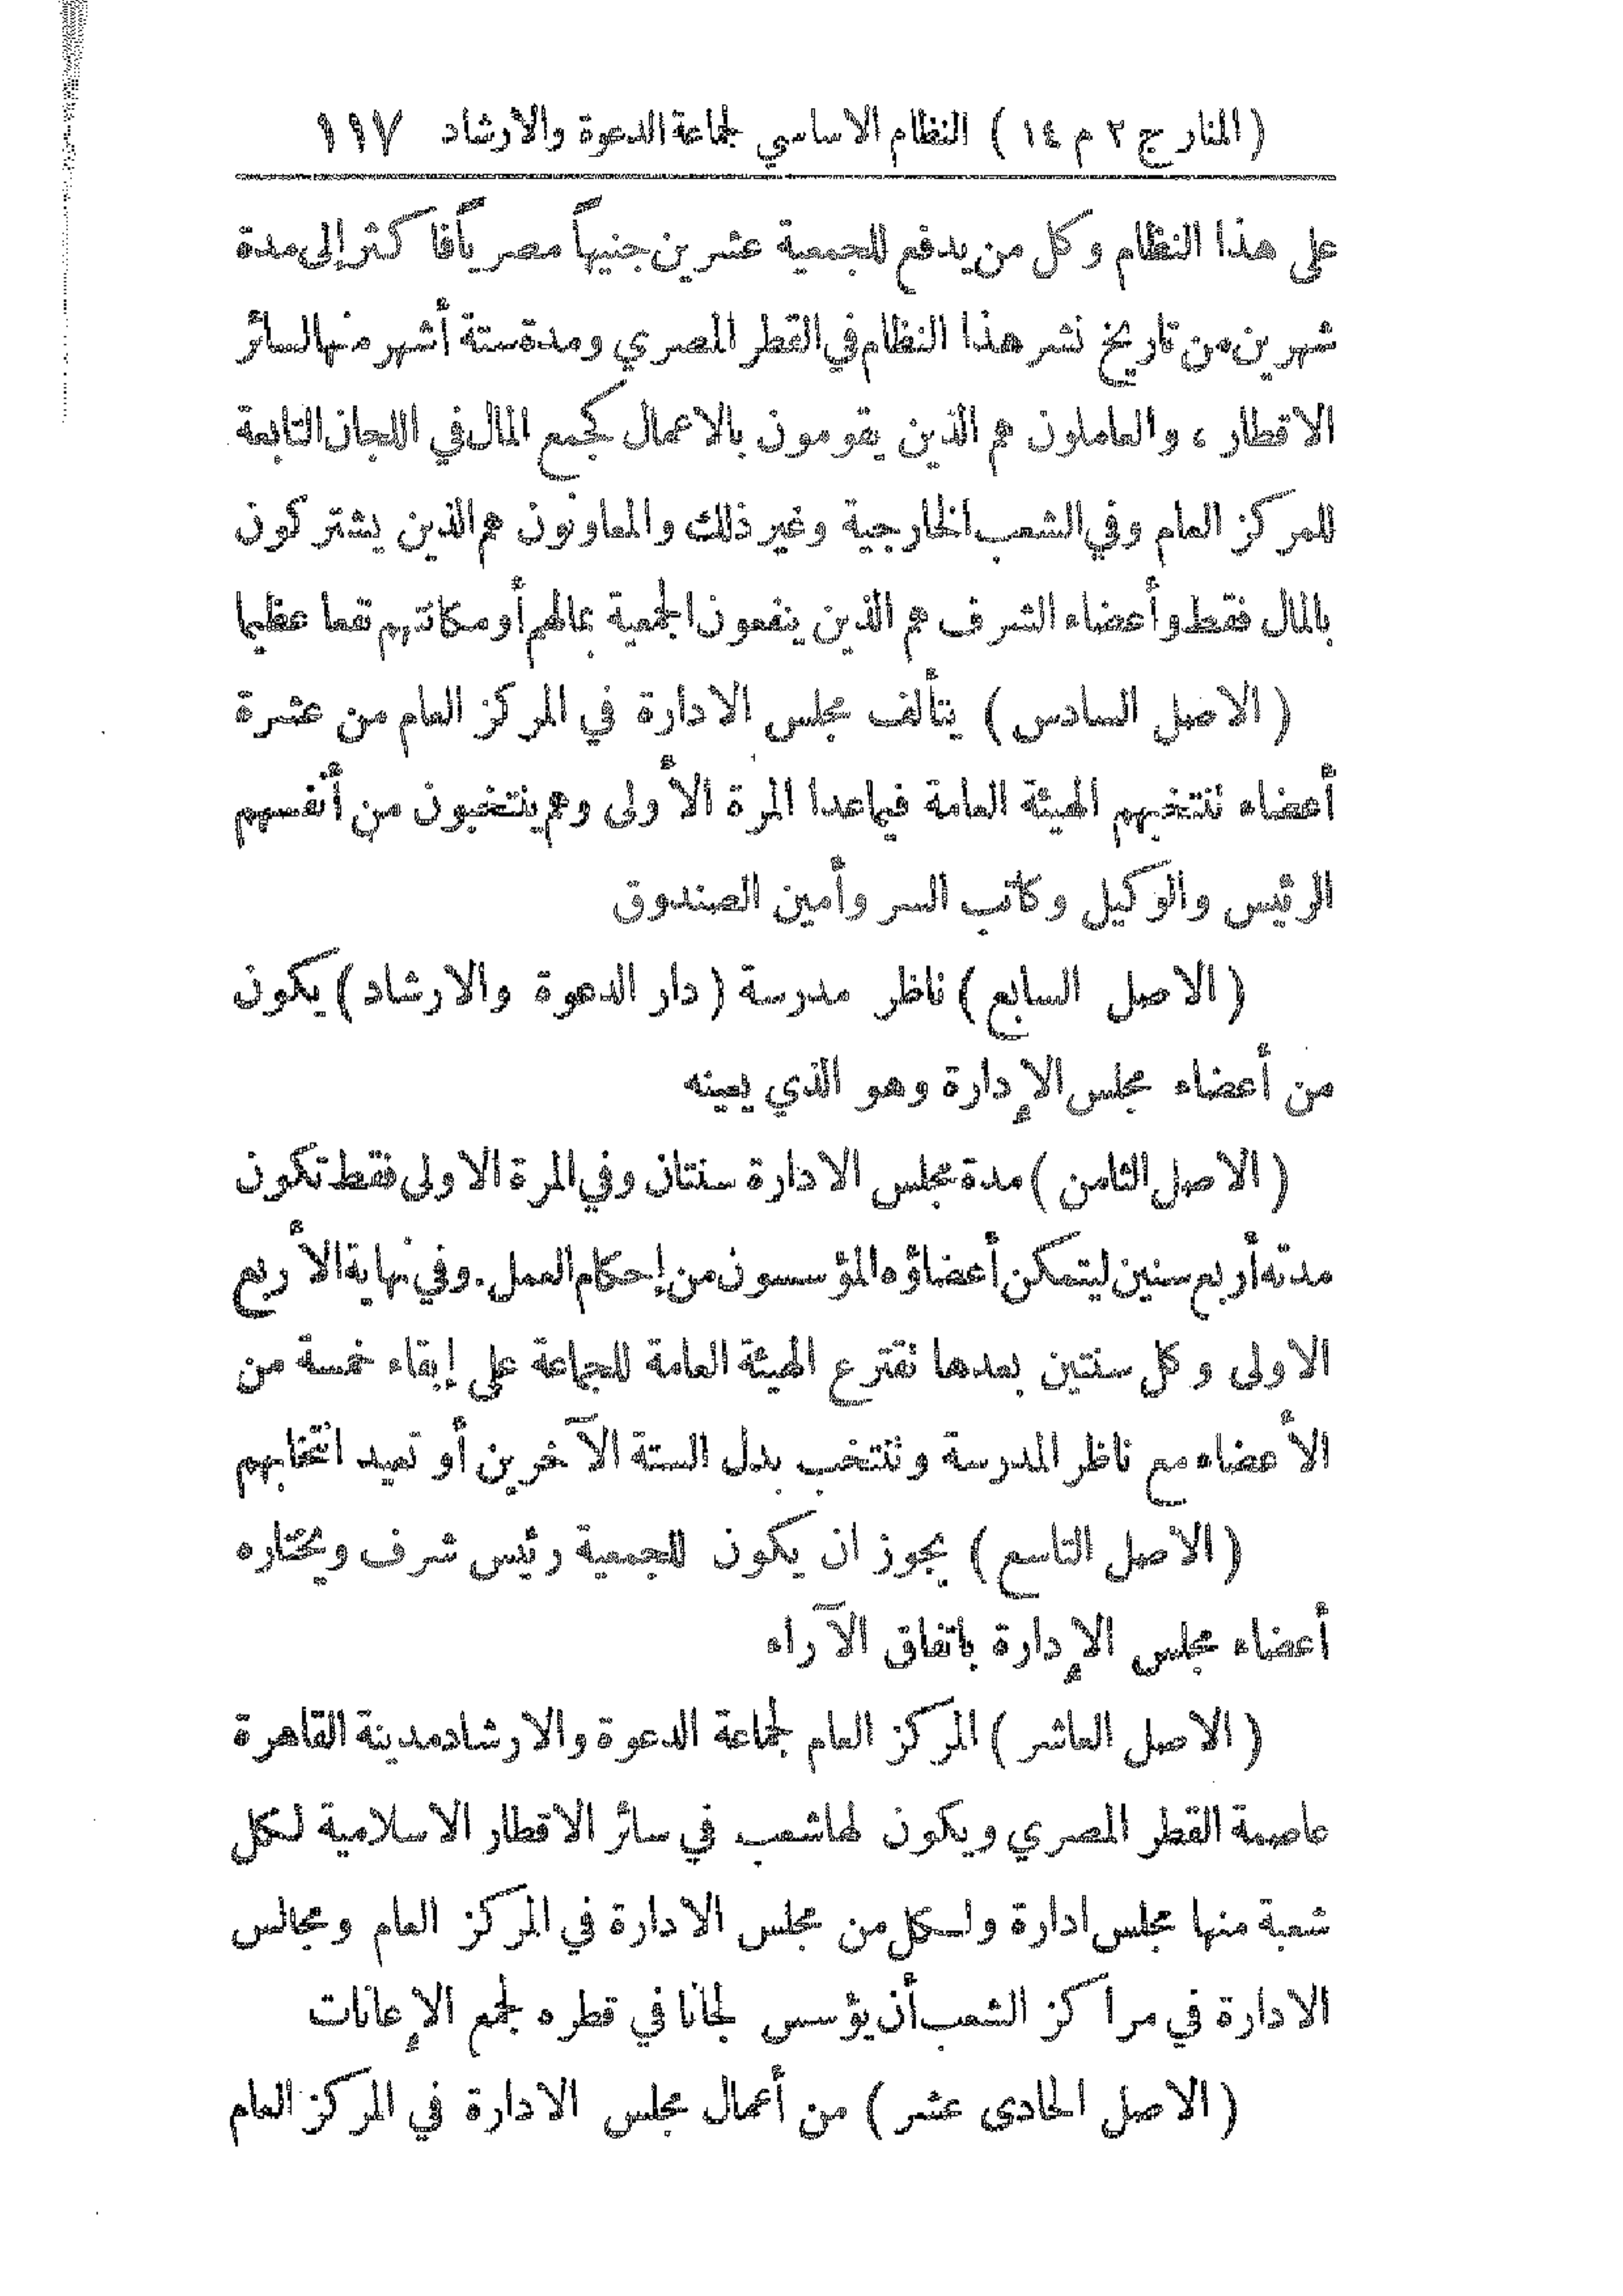 (المنار ج ٢ م ١٤) النظام الاساسي لجماعة الدعوة والارشاد ١١٧
على هذا النظام وكل من يدفع للجمعية عشرين جنيهاً مصرياً فاكثر إلى مدة
شهرين من تاريخ نشر هذا النظام في القطر المصري ومدة ستة أشهر منها لسائر
الاقطار ، والعاملون هم الذين يقومون بالاعمال كجمع المال في اللجان التابعة
للمركز العام وفي الشعب الخارجية وغير ذلك والمعاونون هم الذين يشتركون
بالمال فقط وأعضاء الشرف هم الذين ينفعون الجمعية بمالهم أو مكانتهم نفعا عظيما
(الاصل السادس) يتألف مجلس الادارة في المركز العام من عشرة
أعضاء تنتخبهم الهيئة العامة فيما عدا المرة الأولى وهم ينتخبون من أنفسهم
الرئيس والوكيل وكاتب السر وأمين الصندوق
(الاصل السابع) ناظر مدرسة (دار الدعوة والارشاد) يكون
من أعضاء مجلس الإدارة وهو الذي يعينه
(الاصل الثامن) مدة مجلس الادارة سنتان وفي المرة الاولى فقط تكون
مدته أربع سنين ليتمكن أعضاؤه المؤسسون من إحكام العمل. وفي نهاية الأربع
الاولى وكل سنتين بعدها تقترع الهيئة العامة للجماعة على إبقاء خمسة من
الأعضاء مع ناظر المدرسة وتنتخب بدل الستة الآخرين أو تعيد انتخابهم
(الاصل التاسع) يجوز ان يكون للجمعية رئيس شرف ويختاره
أعضاء مجلس الإدارة باتفاق الآراء
(الاصل العاشر) المركز العام لجماعة الدعوة والارشاد مدينة القاهرة
عاصمة القطر المصري ويكون لها شعب في سائر الاقطار الاسلامية لكل
شعبة منها مجلس ادارة ولكل من مجلس الادارة في المركز العام ومجالس
الادارة في مراكز الشعب أن يؤسس لجانا في قطره لجمع الإعانات
(الاصل الحادى عشر) من أعمال مجلس الادارة في المركز العام